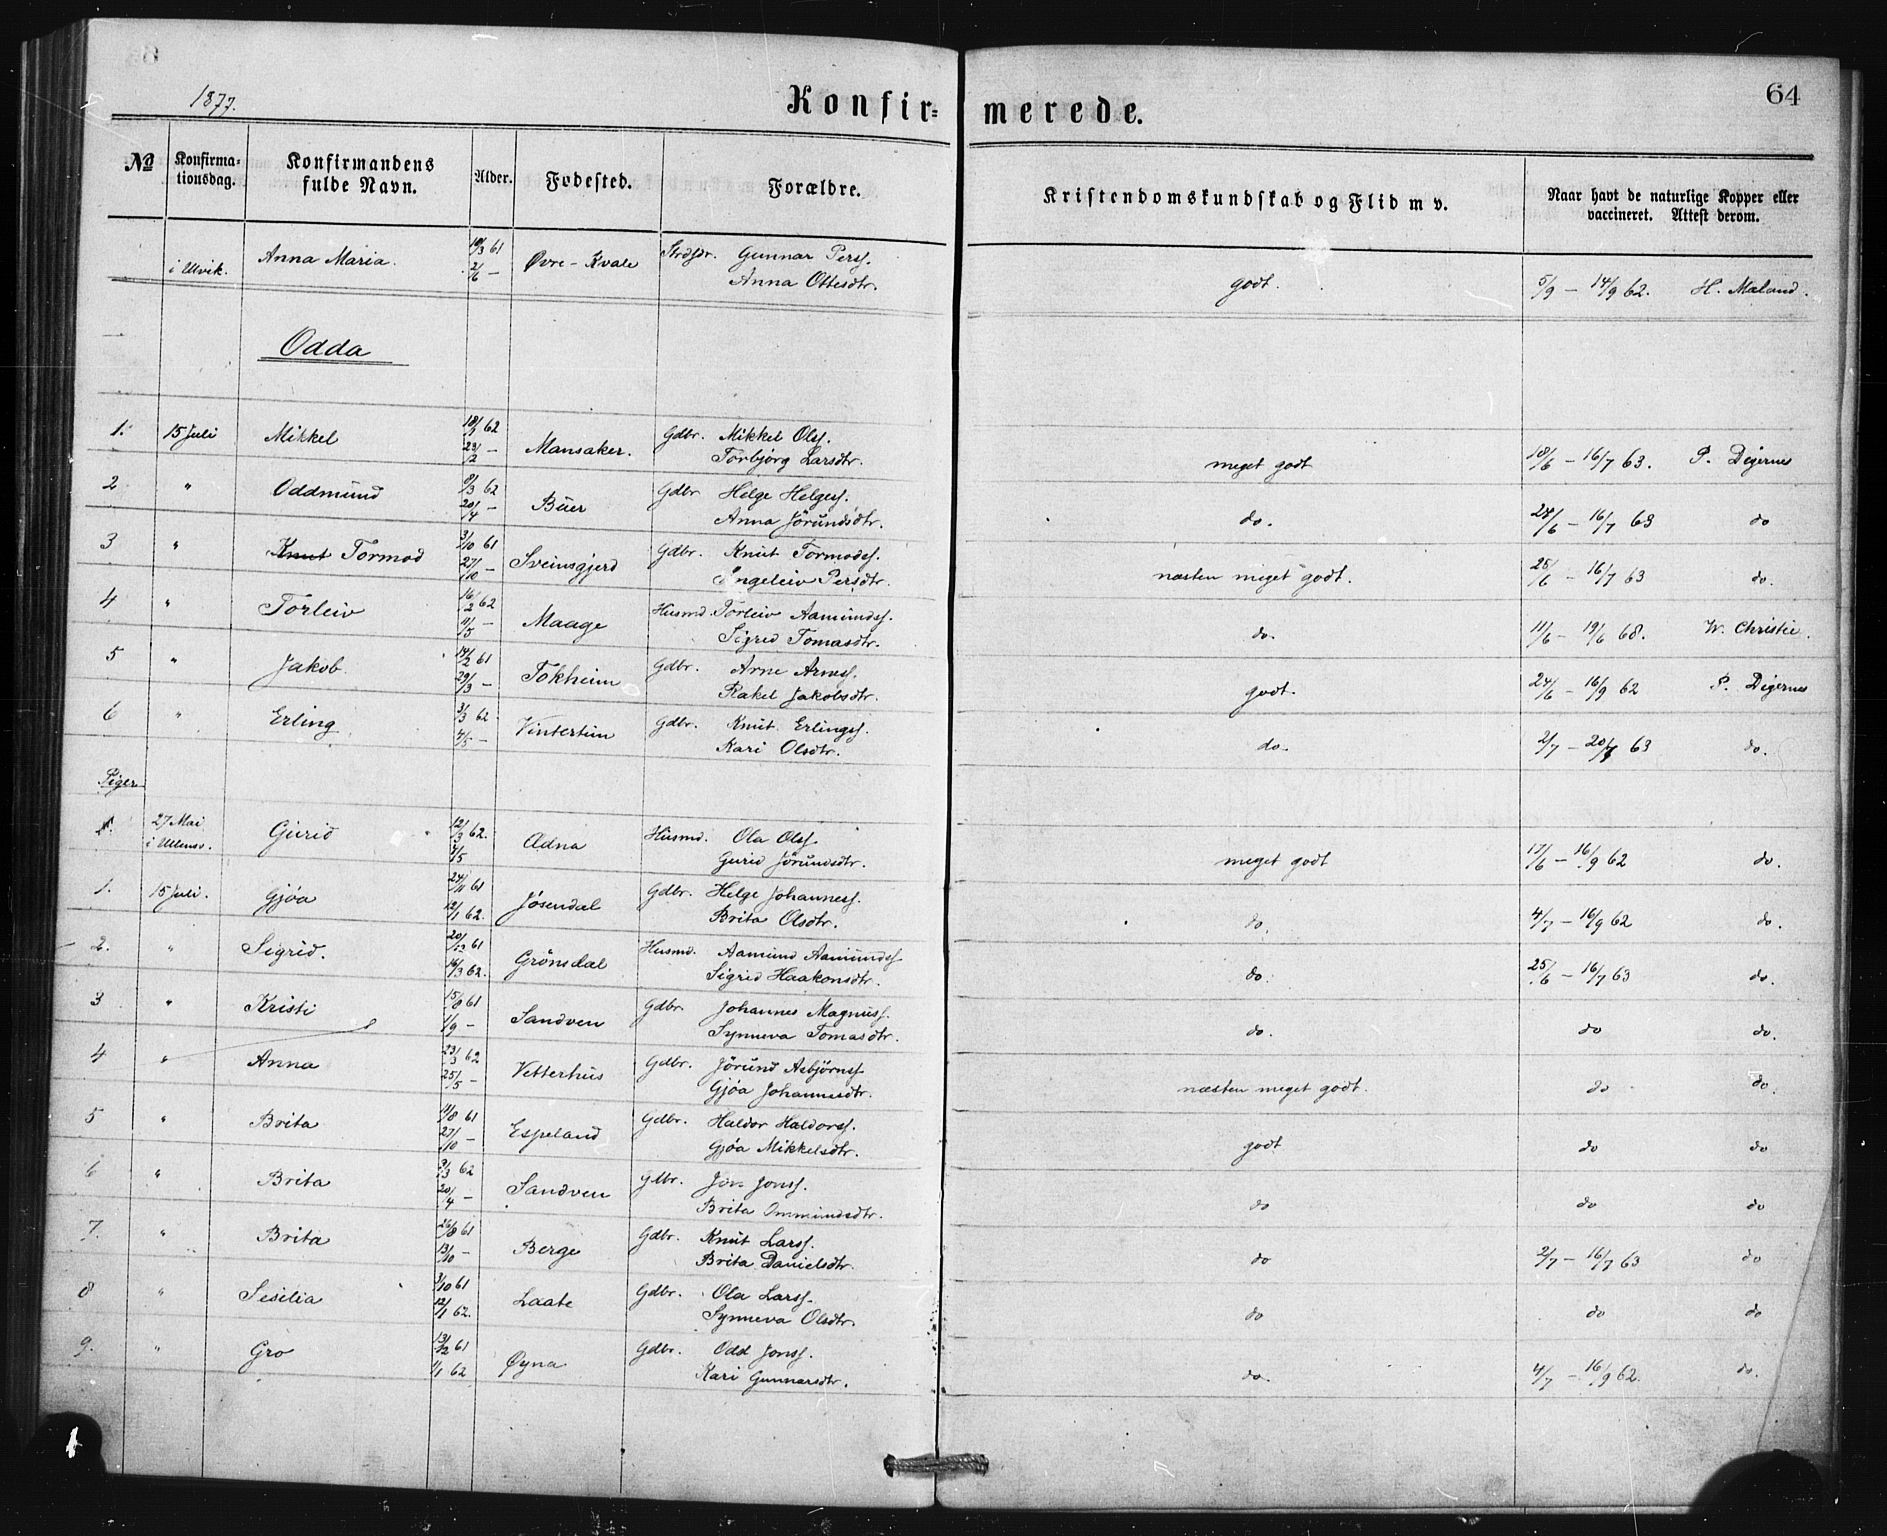 1877.
Konfir=
merede.
64
No
Konfirma-
tionsdag.
Konfirmandens
fulde Navn.
Alder.
Fødested.
Forældre.
Kristendomskundskab og Flid m v.
Naar havt de naturlige Kopper eller
vaccineret. Attest derom.
i Ulvik. Anna Maria. 10/3 61 Øvre-Kvale Strdsdr. Gunnar Perss.
2/6 — Anna Ottesdtr. godt. 5/9 — 14/9 62. H. Mæland.
Odda
1. 15 Juli Mikkel 62 Mansaker. Gdbr. Mikkel Olss.
23/2 — Torbjørg Larsdtr. meget godt 18/6 — 16/7 63. P. Digernes
2 " Oddmund 9/3 62 Buer Gdbr. Helge Helgess.
20/4 — Anna Jörundsdtr. do. 24/6 — 16/7 63 do
3 " Knut Tormod 3/10 61 Sveinsgjerd Gdbr. Knut Tormodss.
27/10 — Engeleiv Persdtr. næsten meget godt. 25/6 — 16/7 63 do.
4 " Torleiv 16/2 62 Maage Husmd. Torleiv Aamundss.
11/5 — Sigrid Tomasdtr. do. 11/6 — 19/6 68. W. Christie.
5 " Jakob. 14/2 61 Tokheim Gdbr. Arne Arness.
29/3 — Rakel Jakobsdtr. godt. 24/6 — 16/9 62 P. Digernes
6 " Erling 3/3 62 Vintertun Gdbr. Knut Erlingss.
4/5 — Kari Olsdtr. do. 2/7 — 20/7 63 do.
Piger
1. 27 Mai Gurid 12/3 62. Adna Husmd. Ola Olss.
i Ullensv. Gurid Jörundsdtr. meget godt 17/6 — 16/9 62 do.
1. 15 Juli. Gjøa 24/11 61 Jösendal Gdbr. Helge Johanness.
12/1 62. Brita Olsdtr. do. 4/7 — 16/9 62 do.
2. " Sigrid. 61 Grönsdal Husmd. Aamund Aamundss.
16/3 62. Sigrid Haakonsdtr. do. 25/6 — 16/7 63 do.
3 " Kristi 15/8 61 Sandven Gdbr. Johannes Magnuss.
1/9 — Synneva Tomasdtr. do. do do.
4 " Anna 23/3 62 Vetterhus Gdbr. Jörund Asbjörnss.
25/5 — Gjøa Johannesdtr. næsten meget godt. do do.
5 " Brita 11/8 61 Espeland Gdbr. Haldor Haldorss.
27/10 — Gjøa Mikkelsdtr. godt do do
6 " Brita 9/3 62 Sandven Gdbr. Jon Jonss.
20/4 — Brita Ommundsdtr. do do do
7. " Brita 26/8 61 Berge Gdbr. Knut Larss.
13/10 — Brita Danielsdtr. do 2/7 — 16/7 63 do
8 " Sesilia 3/10 61 Laate Gdbr. Ola Larss.
12/1 62. Synneva Olsdtr. do do do
9. " Gro 13/12 61 Øyna Gdbr. Odd Jonss.
1/1 62 Kari Gunnarsdtr. do. 4/7 — 16/9 62. do.